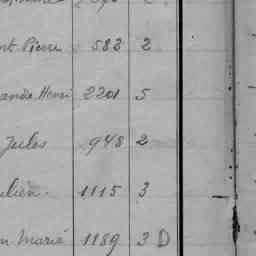 Pierre 583 2
Henri 2201 5
Jules 948 2
1115 3
Marie 1189 3 D